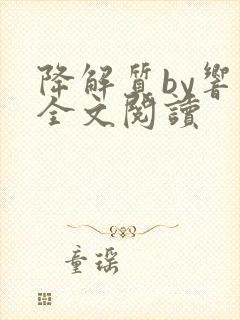 降解質by響
全文閱讀
童瑤